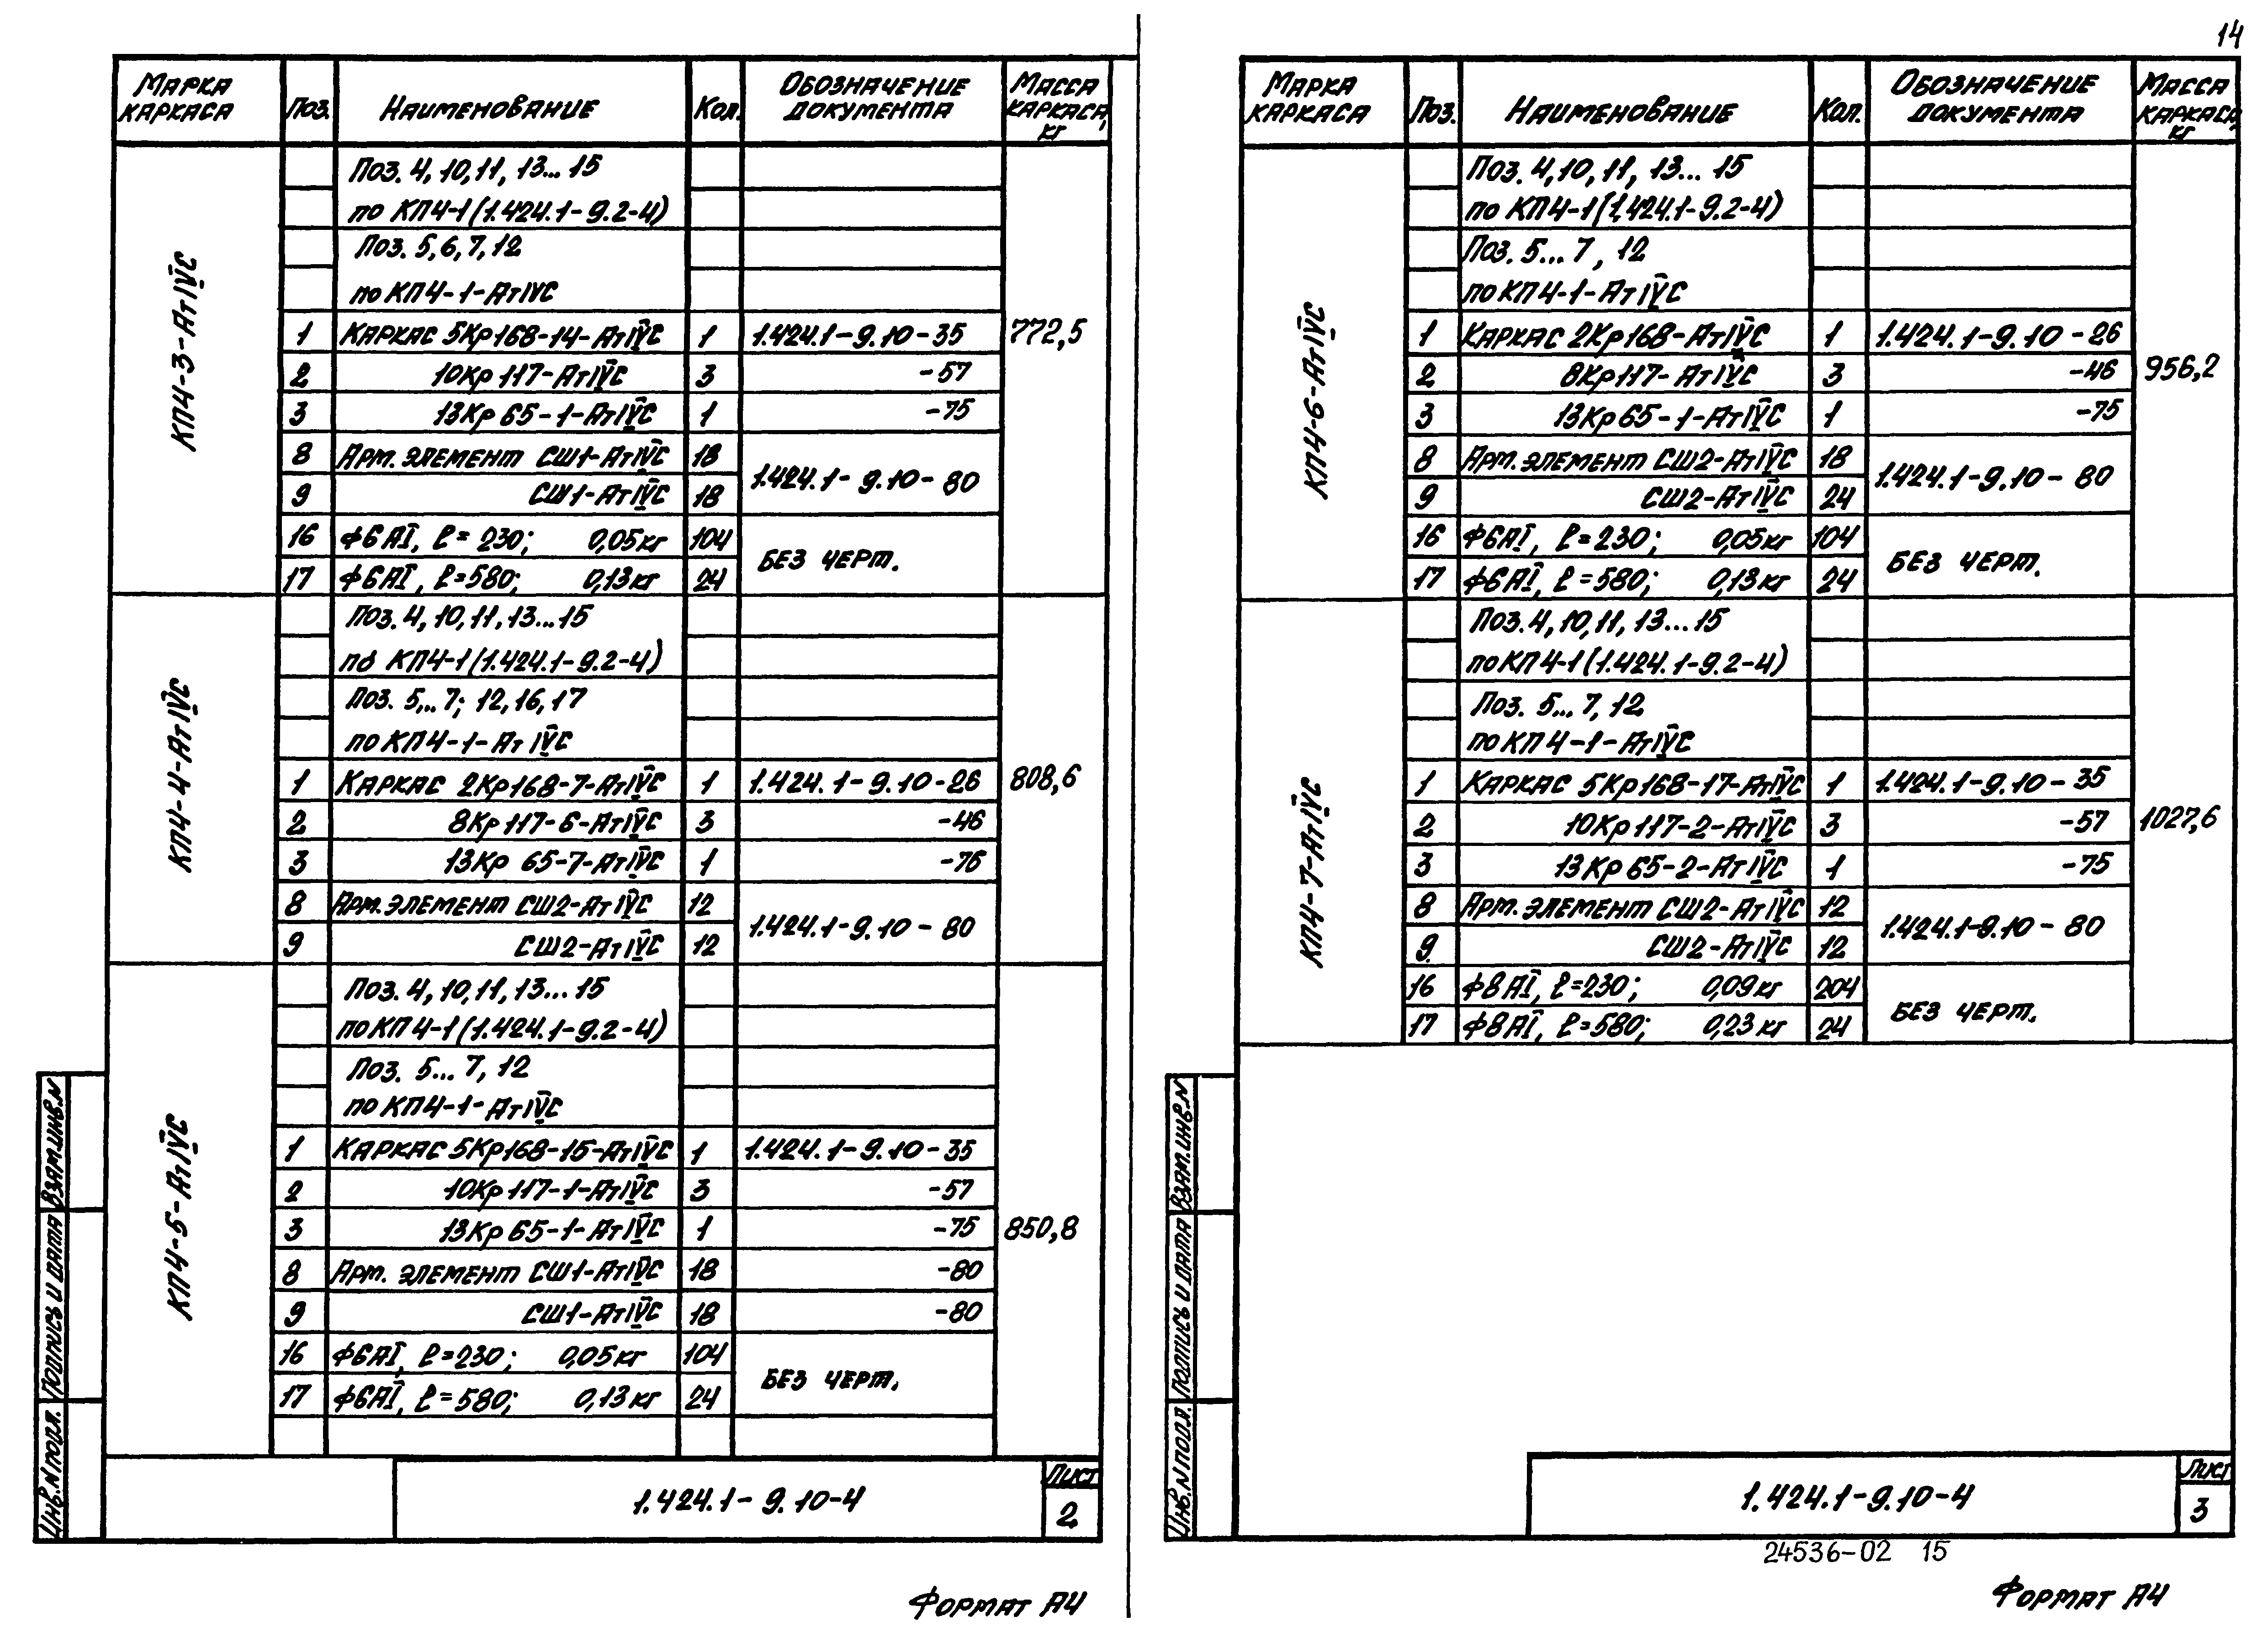 14
Марка каркаса | Поз. | Наименование | Кол. | Обозначение документа | Масса каркаса, кг
КП4-3-АтIVС
Поз. 4, 10, 11, 13...15
по КП4-1 (1.424.1-9.2-4)
Поз. 5, 6, 7, 12
по КП4-1-АтIVС
1 | Каркас 5Кр168-14-АтIVС | 1 | 1.424.1-9.10-35 | 772,5
2 | 10Кр117-АтIVС | 3 | -57
3 | 13Кр65-1-АтIVС | 1 | -75
8 | Арм. элемент СШ1-АтIVС | 18 | 1.424.1-9.10-80
9 | СШ1-АтIVС | 18
16 | ф6АI, ℓ=230; 0,05кг | 104 | Без черт.
17 | ф6АI, ℓ=580; 0,13кг | 24
КП4-4-АтIVС
Поз. 4, 10, 11, 13...15
по КП4-1 (1.424.1-9.2-4)
Поз. 5...7; 12, 16, 17
по КП4-1-АтIVС
1 | Каркас 2Кр168-7-АтIVС | 1 | 1.424.1-9.10-26 | 808,6
2 | 8Кр117-6-АтIVС | 3 | -46
3 | 13Кр65-7-АтIVС | 1 | -76
8 | Арм. элемент СШ2-АтIVС | 12 | 1.424.1-9.10-80
9 | СШ2-АтIVС | 12
КП4-5-АтIVС
Поз. 4, 10, 11, 13...15
по КП4-1 (1.424.1-9.2-4)
Поз. 5...7, 12
по КП4-1-АтIVС
1 | Каркас 5Кр168-15-АтIVС | 1 | 1.424.1-9.10-35
2 | 10Кр117-1-АтIVС | 3 | -57
3 | 13Кр65-1-АтIVС | 1 | -75 | 850,8
8 | Арм. элемент СШ1-АтIVС | 18 | -80
9 | СШ1-АтIVС | 18 | -80
16 | ф6АI, ℓ=230; 0,05кг | 104 | Без черт.
17 | ф6АI, ℓ=580; 0,13кг | 24
Инв. N подл. | Подпись и дата | Взам. инв. N
1.424.1-9.10-4
Лист
2
Формат А4
Марка каркаса | Поз. | Наименование | Кол. | Обозначение документа | Масса каркаса, кг
КП4-6-АтIVС
Поз. 4, 10, 11, 13...15
по КП4-1 (1.424.1-9.2-4)
Поз. 5...7, 12
по КП4-1-АтIVС
1 | Каркас 2Кр168-АтIVС | 1 | 1.424.1-9.10-26
2 | 8Кр117-АтIVС | 3 | -46 | 956,2
3 | 13Кр65-1-АтIVС | 1 | -75
8 | Арм. элемент СШ2-АтIVС | 18 | 1.424.1-9.10-80
9 | СШ2-АтIVС | 24
16 | ф6АI, ℓ=230; 0,05кг | 104 | Без черт.
17 | ф6АI, ℓ=580; 0,13кг | 24
КП4-7-АтIVС
Поз. 4, 10, 11, 13...15
по КП4-1 (1.424.1-9.2-4)
Поз. 5...7, 12
по КП4-1-АтIVС
1 | Каркас 5Кр168-17-АтIVС | 1 | 1.424.1-9.10-35
2 | 10Кр117-2-АтIVС | 3 | -57 | 1027,6
3 | 13Кр65-2-АтIVС | 1 | -75
8 | Арм. элемент СШ2-АтIVС | 12 | 1.424.1-9.10-80
9 | СШ2-АтIVС | 12
16 | ф8АI, ℓ=230; 0,09кг | 204 | Без черт.
17 | ф8АI, ℓ=580; 0,23кг | 24
Инв. N подл. | Подпись и дата | Взам. инв. N
1.424.1-9.10-4
Лист
3
24536-02 15
Формат А4